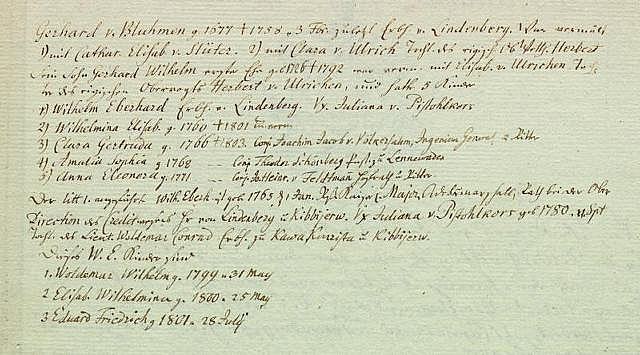 Gerhard v. Bluhmen g 1677 † 1758 u 3 Feb. zuletzt Erbh v. Lindenberg. War vermält
1) mit Cathar. Elisab v. Stüter. 2) mit Clara v. Ulrich Tocht. des rigisch Herbert
Sein Sohn Gerhard Wilhelm g 1726 † 1792 war verm. mit Elisab. v. Ulrichen
des rigischen Obervogts Herbert v. Ulrichen, und hatte 5 Kinder
1) Wilhelm Eberhard Erbh. v. Lindenberg. Ux Juliana v. Pistohlkors
2) Wilhelmina Elisab. g. 1760 † 1801
3) Clara Gertruda g. 1766 † 1803. Conj. Joachim Jacob v. Völkersahm, Ingenieur General, u Ritter
4) Amalia Sophia g 1768 — Conj Theodor Schönberg zu Lennewaden
5) Anna Eleonora g. 1771 — Conj v. Feldtman u Ritter
Der Wilh. Eberh ist geb 1765 d 1 Jan. Major, bei der Ober
Direction des Creditwerks Hr von Lindenberg u Kibbijerw. Ux Juliana v. Pistohlkors geb 1780. Sept
Tocht. des Lieut. Woldemar Conrad Erbh. zu Kawa u Kibbijerw.
Dieses W. E. Kinder sind
1. Woldemar Wilhelm g. 1799 d 31 May
2 Elisab. Wilhelmina g. 1800 d 25 May
3 Eduard Friedrich g 1801 d 28 July